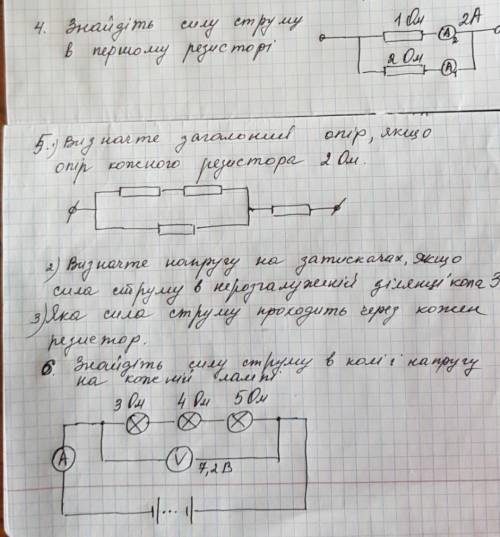 4. Знайдіть силу струму
в першому резисторі
1 Ом
A₂
2А
2 Ом
A₁
5. 1) Визначте загальний опір, якщо
опір кожного резистора 2 Ом.
2) Визначте напругу на затискачах, якщо
сила струму в нерозгалуженій ділянці кола 3
3) Яка сила струму проходить через кожен
резистор.
6. Знайдіть силу струму в колі і напругу
на кожній лампі
3 Ом 4 Ом 5 Ом
A
V
7,2 В